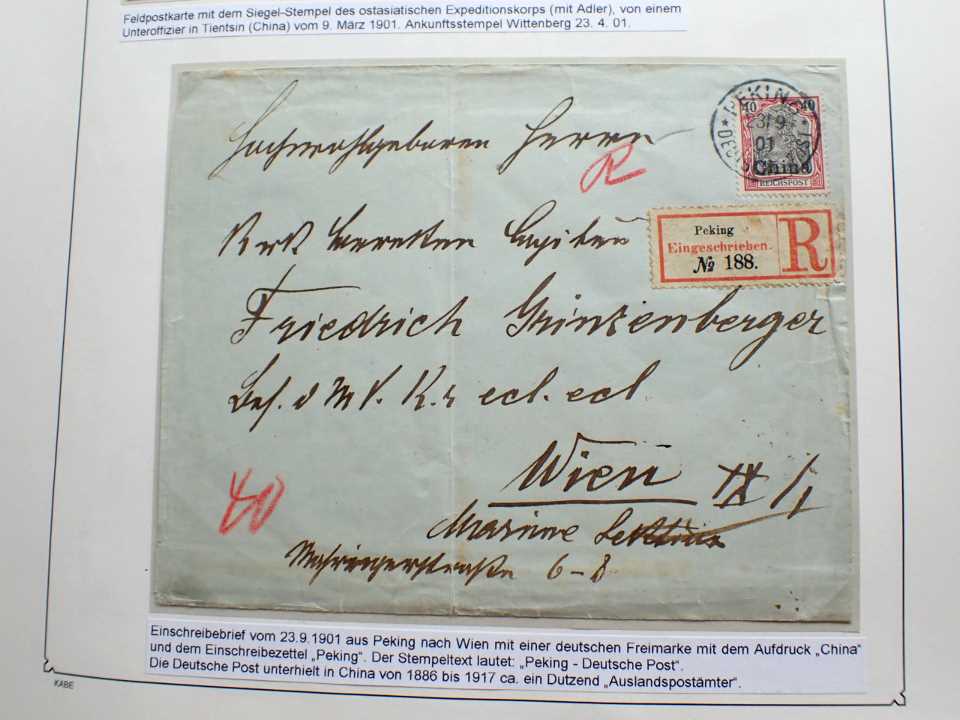 Feldpostkarte mit dem Siegel-Stempel des ostasiatischen Expeditionskorps (mit Adler), von einem
Unteroffizier in Tientsin (China) vom 9. März 1901. Ankunftsstempel Wittenberg 23. 4. 01.
PEKING
23/9
01
40 40
China
REICHSPOST
Hochwohlgeboren Herrn
R
Peking
Eingeschrieben.
№ 188.
R
Friedrich Grinzenberger
Wien IX/1
Marine
40
6-8
Einschreibebrief vom 23.9.1901 aus Peking nach Wien mit einer deutschen Freimarke mit dem Aufdruck „China"
und dem Einschreibezettel „Peking". Der Stempeltext lautet: „Peking - Deutsche Post".
Die Deutsche Post unterhielt in China von 1886 bis 1917 ca. ein Dutzend „Auslandspostämter".
KABE